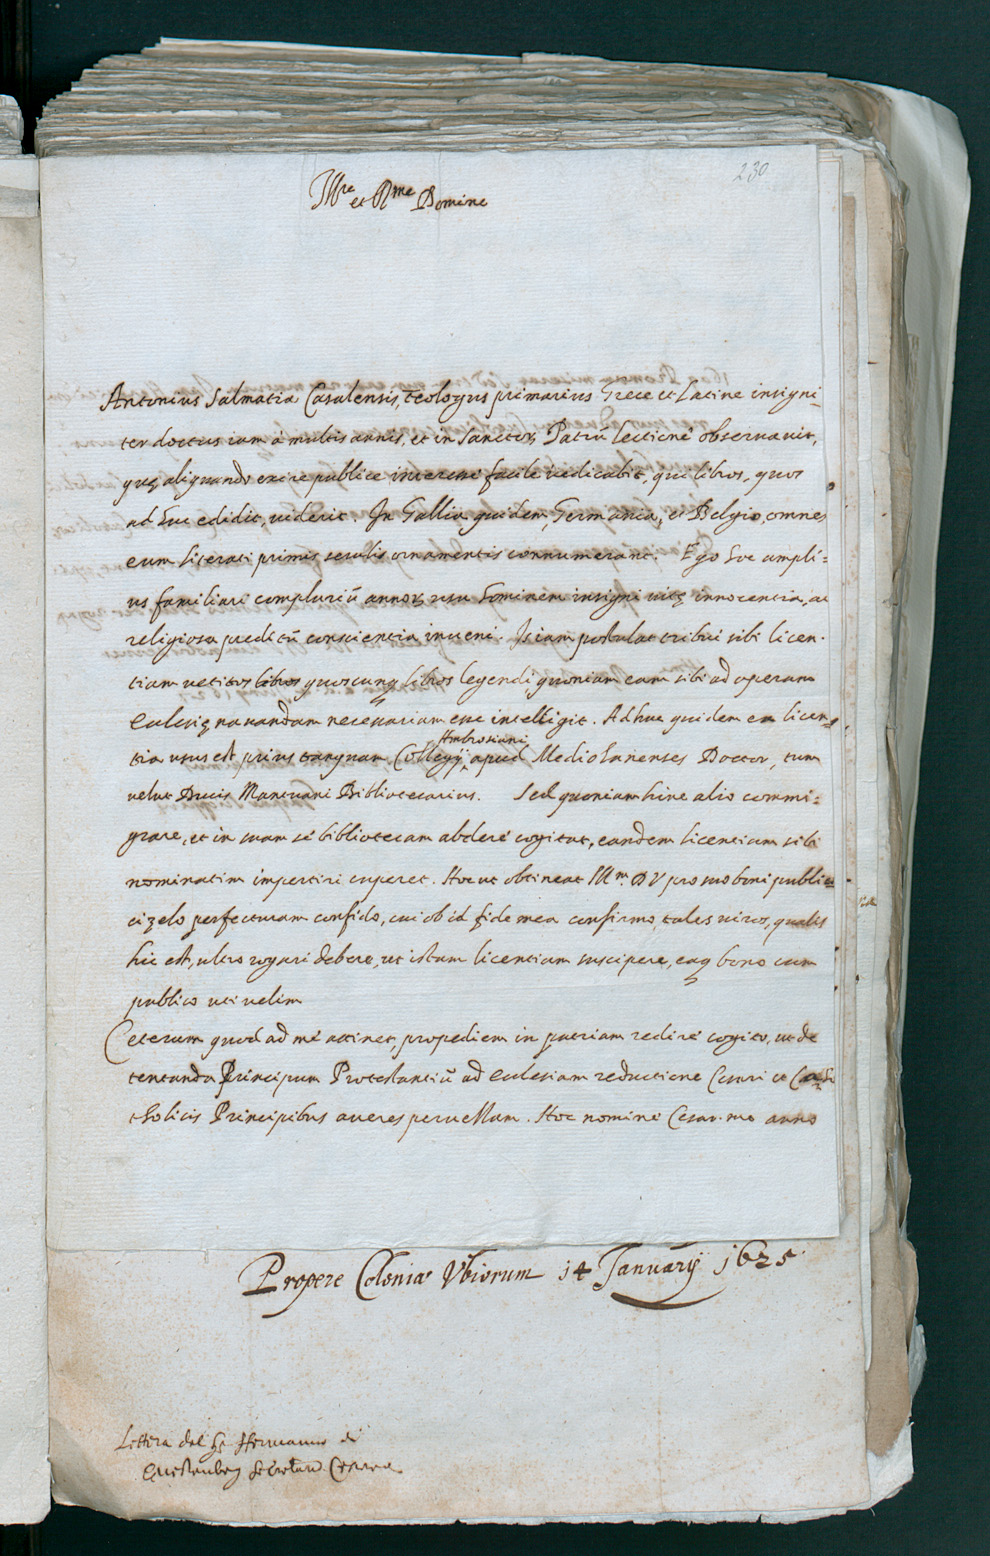 230
Ill.re et R.me Domine
Antonius Salmatia Casalensis, Teologus primarius Grece et Latine insigni-
ter doctus iam à multis annis, et in Sanctor. Patrũ lectione observavit,
quę aliquando exire publice interesse facile iudicabit, qui libros, quos
ad huc edidit, viderit. In Gallia quidem, Germania, et Belgio, omnes
eum literati primis seculi ornamentis connumerant. Ego hoc ampli-
us familiari complurium annor. usu hominem insigni vitę innocentia, ac
religiosa preditũ conscientia inveni. Is iam postulat tribui sibi licen-
tiam vetitos libros quoscunq. libros legendi, quoniam eam sibi ad operam
Eclesię navandam necessariam esse intelligit. Ad huc quidem ea licen-
tia usus est prius tanquam Collegij Ambrosiani apud Mediolanenses Doctor, tum
velut Ducis Mantuani Bibliotecarius. Sed quoniam hinc alio commi-
grare, et in suam sè bibliotecam abdere cogitat, eandem licentiam sibi
nominatim impertiri cuperet. Hoc ut obtineat Ill.m D V pro suo boni publi-
ci zelo perfecturam confido, cui ob id fide mea confirmo, tales viros, qualis
hic est, ultro rogari debere, ut istam licentiam suscipere, eaq. bono cum
publico uti velim
Ceterum quod ad mè attinet, propediem in patriam redire cogito, ut de
tentanda Principum Protestantiũ ad eclesiam reductione Cesari et Ca-
tholicis Principibus aures pervellam. Hoc nomine Cesar. me anno
Propere Coloniae Ubiorum 14 Januarij 1625
Lettera del Sr Hermanno di
Questenberg Secretari. Cesarea